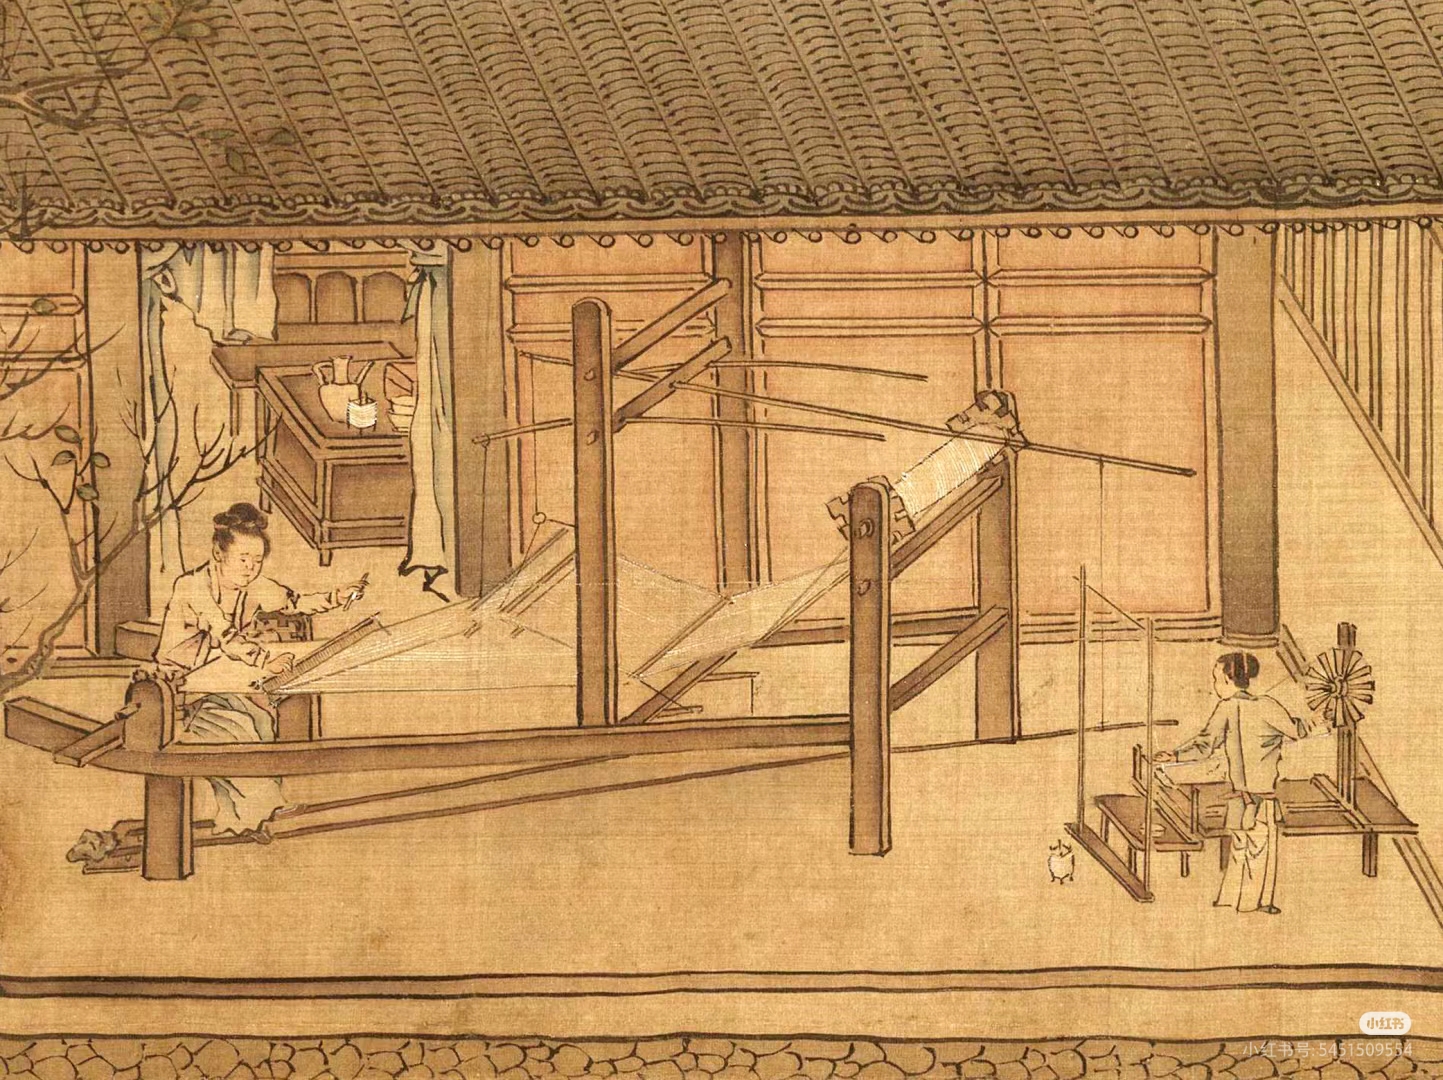 小红书
小红书号: 5451509554